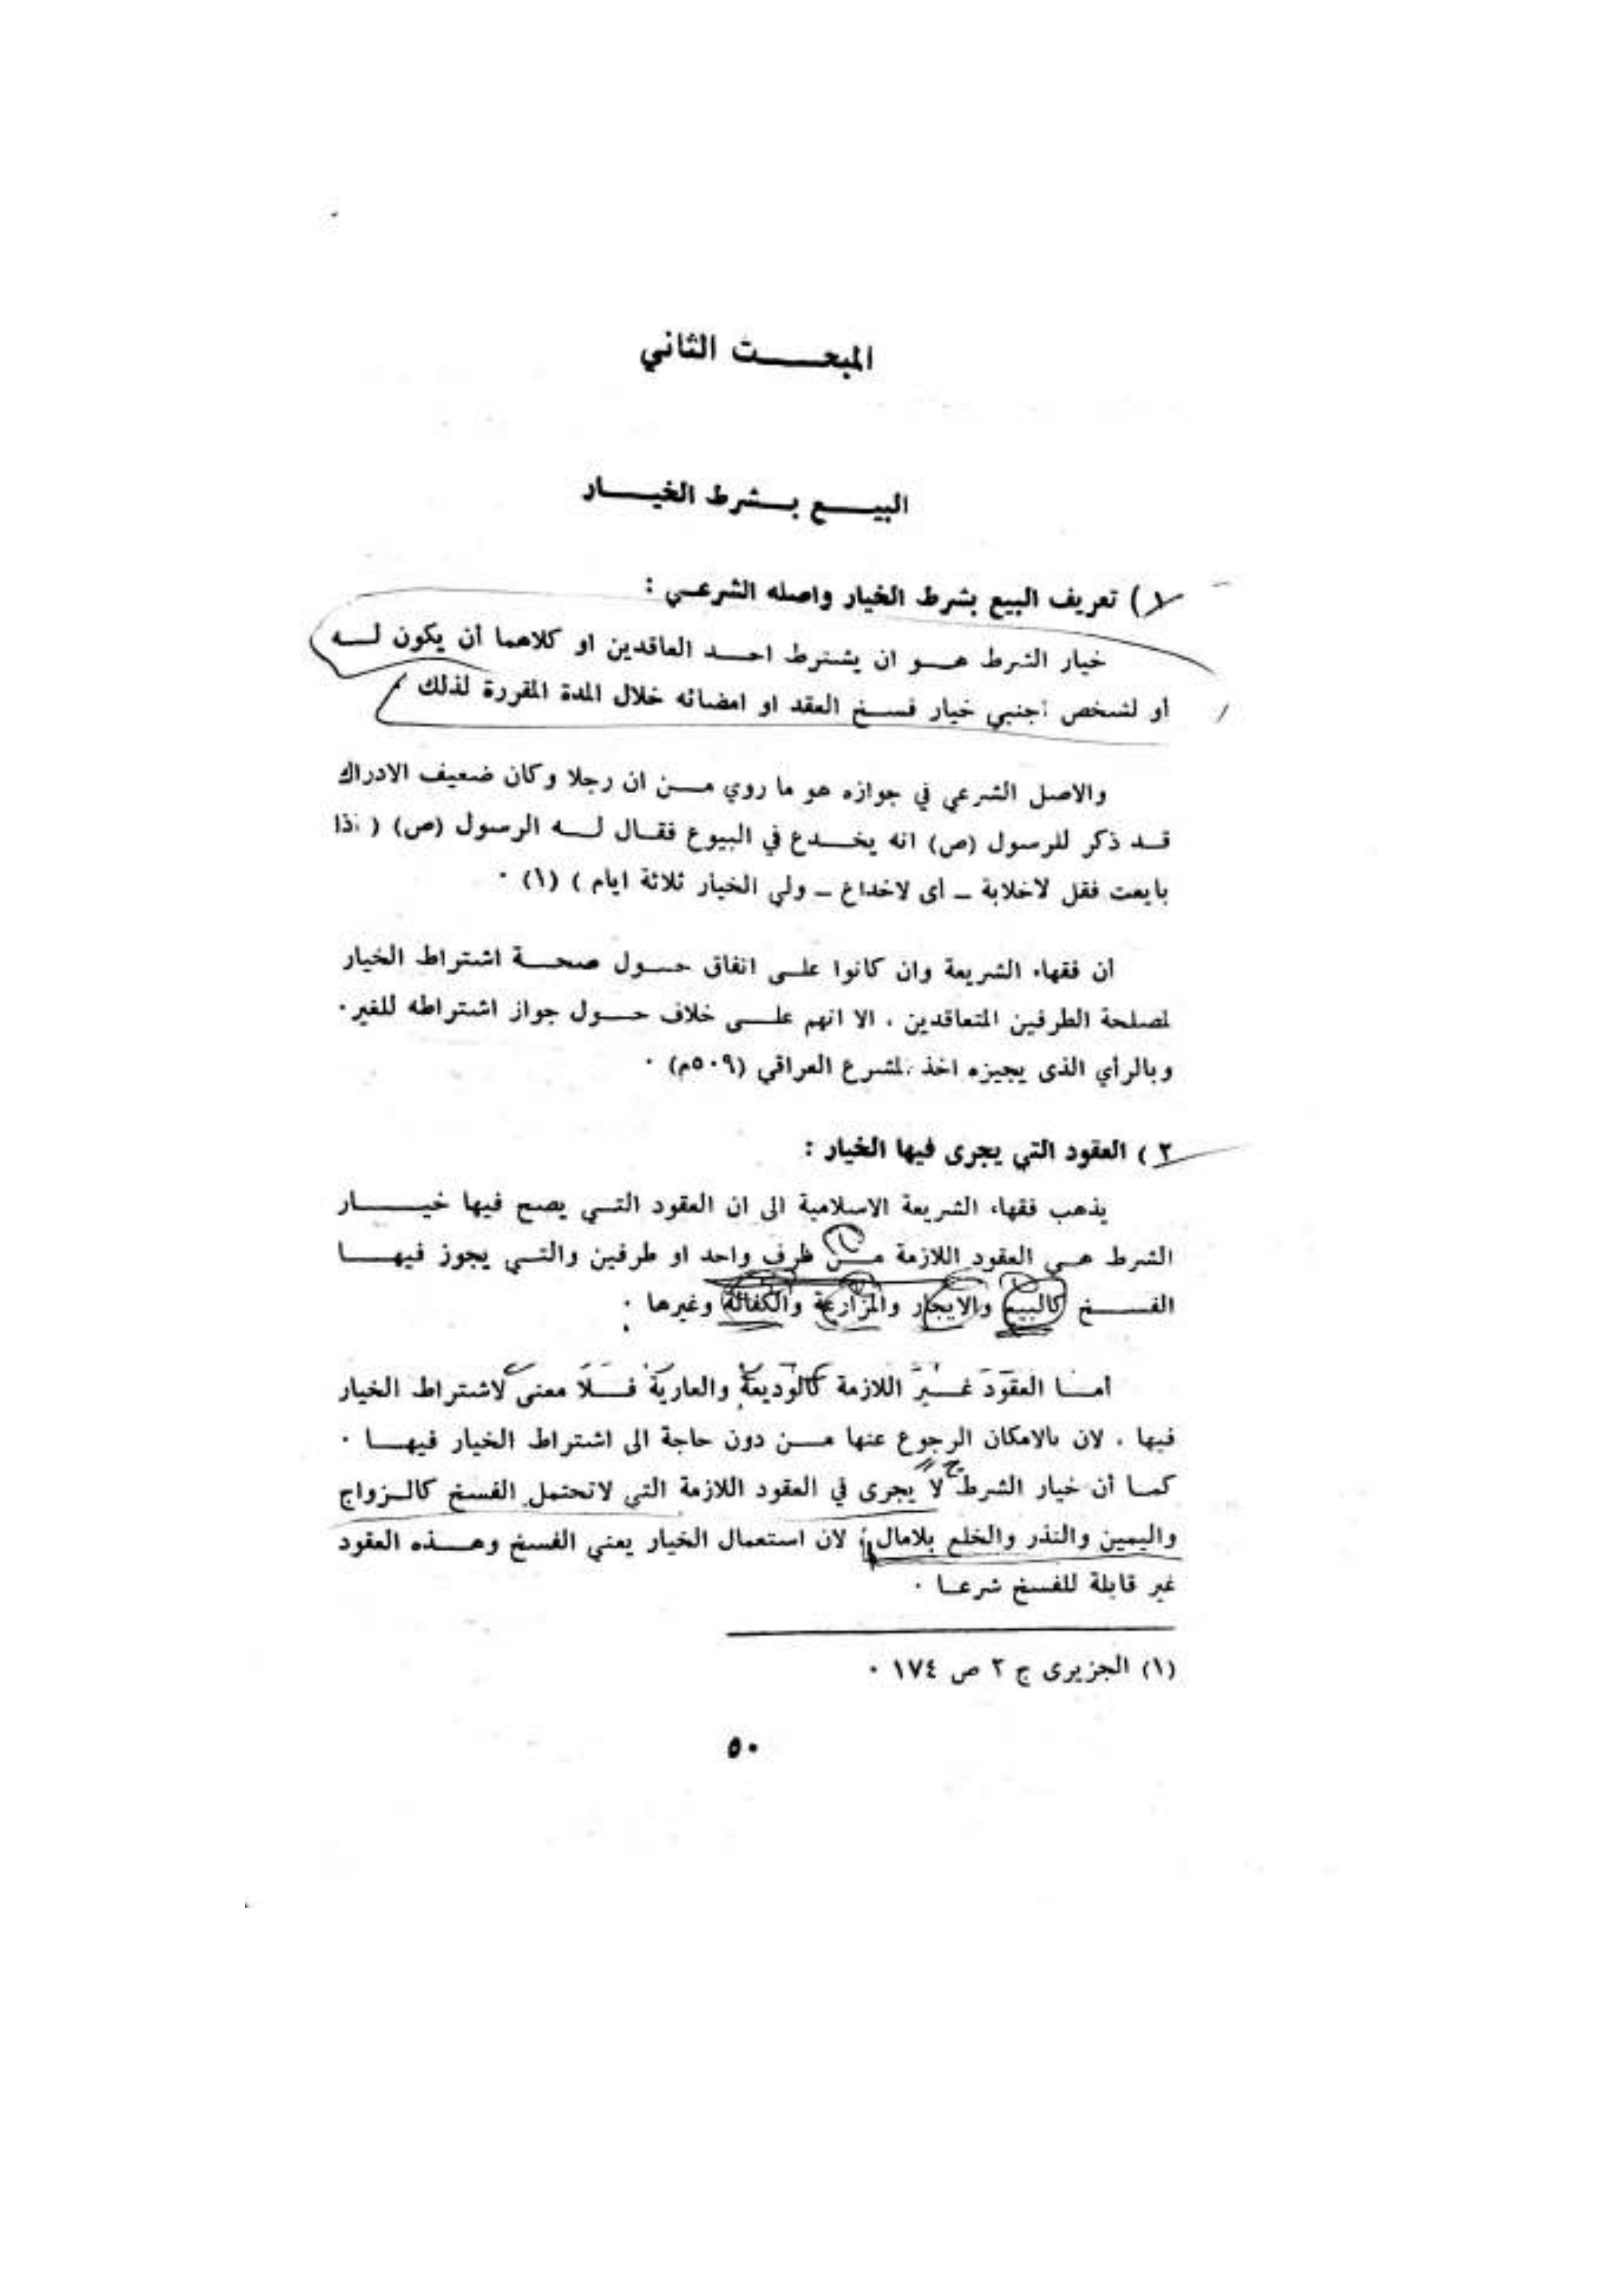 المبحث الثاني
البيع بشرط الخيار
١) تعريف البيع بشرط الخيار واصله الشرعي :
خيار الشرط هو ان يشترط احد العاقدين او كلاهما أن يكون له
أو لشخص أجنبي خيار فسخ العقد او امضائه خلال المدة المقررة لذلك
والاصل الشرعي في جوازه هو ما روي من ان رجلا وكان ضعيف الادراك
قد ذكر للرسول (ص) انه يخدع في البيوع فقال له الرسول (ص) ( اذا
بايعت فقل لاخلابة ــ أى لاخداع ــ ولي الخيار ثلاثة ايام ) (١) ٠
أن فقهاء الشريعة وان كانوا على اتفاق حول صحة اشتراط الخيار
لمصلحة الطرفين المتعاقدين ، الا انهم على خلاف حول جواز اشتراطه للغير ٠
وبالرأي الذى يجيزه اخذ المشرع العراقي (م٥٠٩) ٠
٢ ) العقود التي يجرى فيها الخيار :
يذهب فقهاء الشريعة الاسلامية الى ان العقود التي يصح فيها خيار
الشرط هي العقود اللازمة من طرف واحد او طرفين والتي يجوز فيها
الفسخ كالبيع والايجار والمزارعة والكفالة وغيرها ٠
أما العقود غير اللازمة كالوديعة والعارية فلا معنى لاشتراط الخيار
فيها ، لان بالامكان الرجوع عنها من دون حاجة الى اشتراط الخيار فيها ٠
كما أن خيار الشرط لا يجرى في العقود اللازمة التي لاتحتمل الفسخ كالزواج
واليمين والنذر والخلع بلامال ، لان استعمال الخيار يعني الفسخ وهذه العقود
غير قابلة للفسخ شرعا ٠
(١) الجزيرى ج ٢ ص ١٧٤ ٠
٥٠